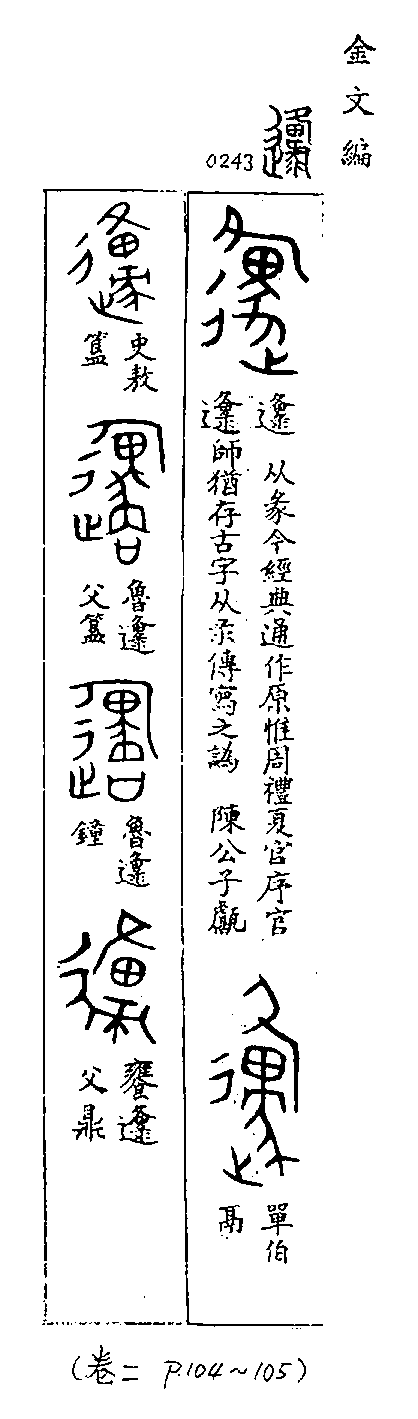 金文編
邍 0243
邍 从彖今經典通作原惟周禮夏官序官
邍師猶存古字从彔傳寫之譌 陳公子甗
單伯
鬲
史敖
簋
魯邍
父簋
魯邍
鐘
雍邍
父鼎
(卷二 P.104~105)